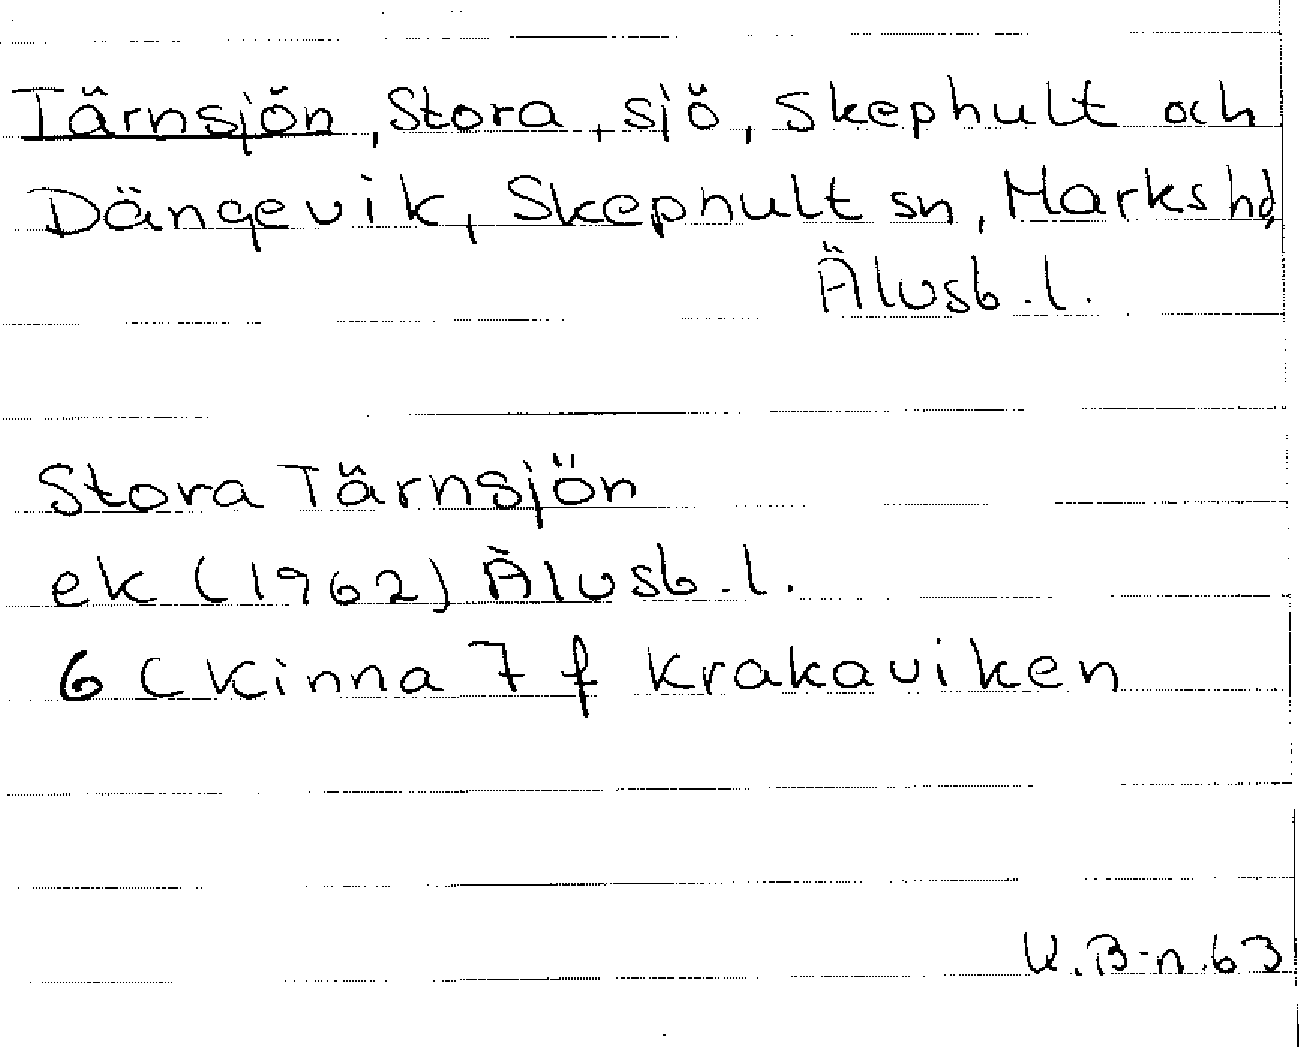 Tärnsjön, Stora, sjö, Skephult och
Dängevik, Skephult sn, Marks hd,
Älvsb. l.
Stora Tärnsjön
ek (1962) Älvsb. l.
6 C Kinna 7 f Krakaviken
K. B-n. 63